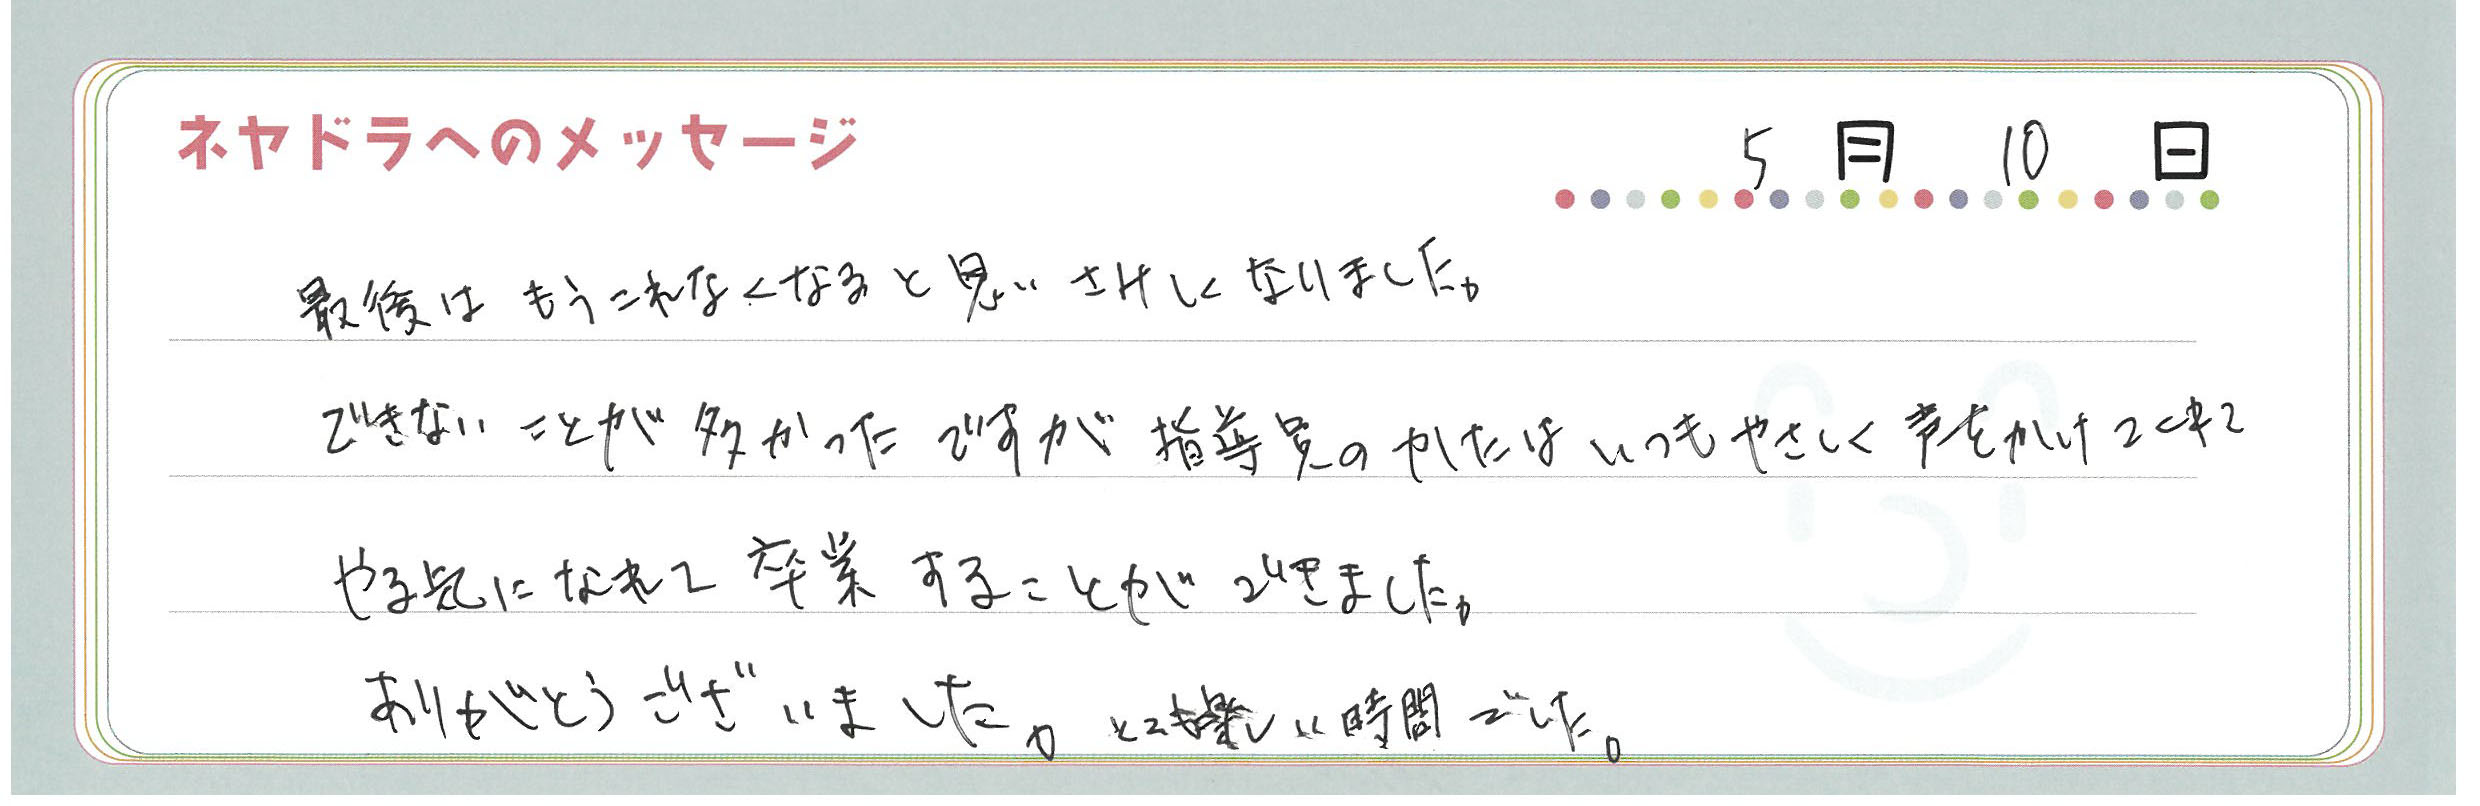 ネヤドラへのメッセージ
5月10日
最後はもうこれなくなると思いさみしくなりました。
できないことが多かったですが指導員のかたはいつもやさしく声をかけてくれて
やる気になれて卒業することができました。
ありがとうございました。とても楽しい時間でした。